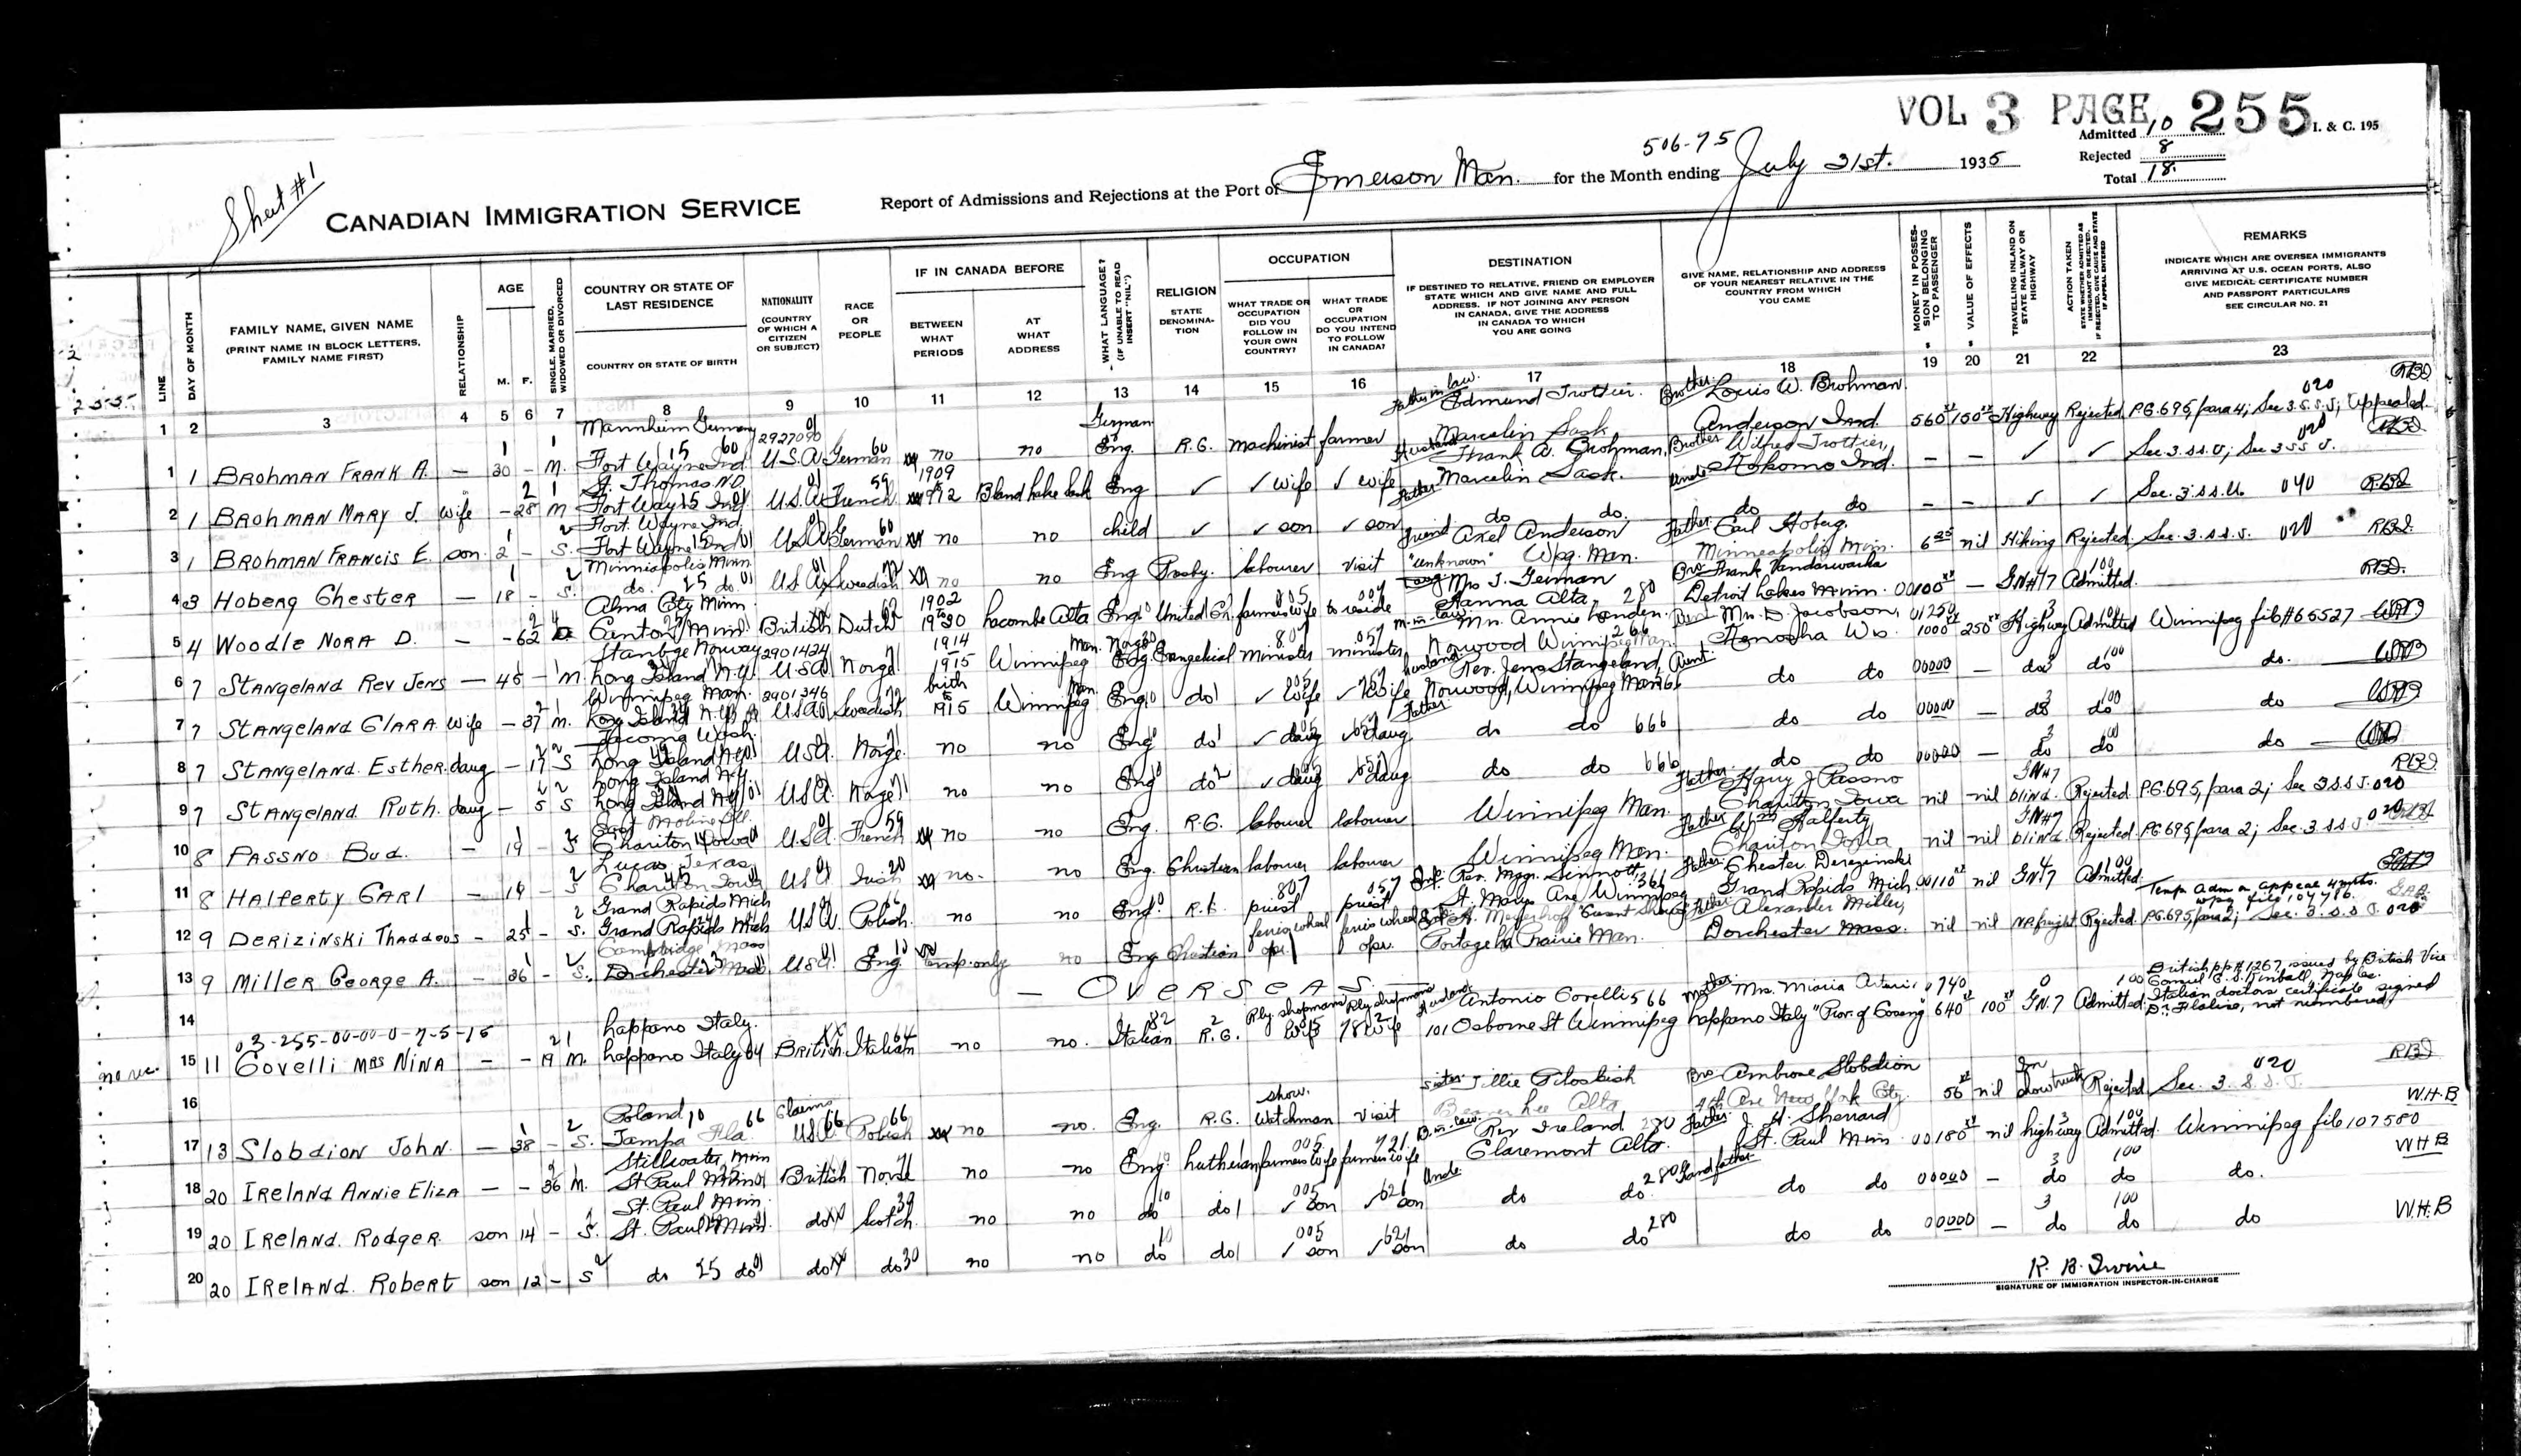 VOL 3 PAGE 255
I. & C. 195
Admitted 10
Rejected 8
Total 18
Sheet #1
506-75
CANADIAN IMMIGRATION SERVICE
Report of Admissions and Rejections at the Port of Emerson Man. for the Month ending July 31st. 1935
LINE
DAY OF MONTH
FAMILY NAME, GIVEN NAME
(PRINT NAME IN BLOCK LETTERS, FAMILY NAME FIRST)
RELATIONSHIP
AGE
M. F.
SINGLE, MARRIED, WIDOWED OR DIVORCED
COUNTRY OR STATE OF LAST RESIDENCE
COUNTRY OR STATE OF BIRTH
NATIONALITY
(COUNTRY OF WHICH A CITIZEN OR SUBJECT)
RACE OR PEOPLE
IF IN CANADA BEFORE
BETWEEN WHAT PERIODS
AT WHAT ADDRESS
WHAT LANGUAGE?
(IF UNABLE TO READ INSERT "NIL")
RELIGION
STATE DENOMINATION
OCCUPATION
WHAT TRADE OR OCCUPATION DID YOU FOLLOW IN YOUR OWN COUNTRY?
WHAT TRADE OR OCCUPATION DO YOU INTEND TO FOLLOW IN CANADA?
DESTINATION
IF DESTINED TO RELATIVE, FRIEND OR EMPLOYER STATE WHICH AND GIVE NAME AND FULL ADDRESS. IF NOT JOINING ANY PERSON IN CANADA, GIVE THE ADDRESS IN CANADA TO WHICH YOU ARE GOING
GIVE NAME, RELATIONSHIP AND ADDRESS OF YOUR NEAREST RELATIVE IN THE COUNTRY FROM WHICH YOU CAME
MONEY IN POSSESSION BELONGING TO PASSENGER
VALUE OF EFFECTS
TRAVELLING INLAND ON STATE RAILWAY OR HIGHWAY
ACTION TAKEN
STATE WHETHER ADMITTED AS IMMIGRANT OR REJECTED. IF REJECTED, GIVE CAUSE AND STATE IF APPEAL ENTERED
REMARKS
INDICATE WHICH ARE OVERSEA IMMIGRANTS ARRIVING AT U.S. OCEAN PORTS, ALSO GIVE MEDICAL CERTIFICATE NUMBER AND PASSPORT PARTICULARS
SEE CIRCULAR NO. 21
1 2 3 4 5 6 7 8 9 10 11 12 13 14 15 16 17 18 19 20 21 22 23
Mannheim Germany German Father in law. Edmund Trottier. Brother Louis W. Brohman
1 1 BROHMAN FRANK A. — 30 - M. Fort Wayne Ind U.S.A German no no Eng. R.G. machinist farmer Marcelin Sask Anderson Ind. 560 150 Highway Rejected P.C. 695, para 4; Sec 3. S.S. J; Appealed
St. Thomas N.D. 1909 Husband Frank A. Brohman, Brother Wilfred Trottier,
2 1 BROHMAN MARY J. wife - 28 M Fort Wayne Ind USA French 1912 Eng ✓ ✓ wife ✓ wife Marcelin Sask. Kokomo Ind. — — ✓ ✓ Sec. 3. ss. U; Sec 3 SS J.
Fort. Wayne Ind. Father Uncle
3 1 BROHMAN FRANCIS E. son. 2 - S. Fort Wayne Ind USA German no no child ✓ ✓ son ✓ son do do. do do — — ✓ ✓ Sec. 3. s.s. U. 040
Minneapolis Minn. friend Axel Anderson Father Carl Hoberg.
4 3 HOBERG CHESTER — 18 - S. do. do USA Swedish no no Eng Presby. labourer visit "unknown" Wpg. Man. Minneapolis Minn. 6 25 nil Hiking Rejected Sec. 3. s.s. J. 020 RBI.
Alma City Minn 1902 Mrs J. Geiman Bro Frank
5 4 WOODLE NORA D. — - 62 Canton Minn British Dutch 1930 Lacombe Alta Eng. United Ch. farmers wife to reside Hanna Alta. 280 Detroit Lakes Minn. 00100 — GN#7 Admitted.
Stanbge Norway 2901424 1914 m.in.law Mrs. Annie Londen. Aunt Mrs. D. Jacobson,
6 7 STANGELAND REV JENS — 45 - M. Long Island N.Y. USA Norge 1915 Winnipeg Man. Norge Eng. Evangelical minister minister Norwood Winnipeg Man. Kenosha Wis. 1000 250 Highway Admitted Winnipeg file #65527
Winnipeg Man. 2901346 birth to husband Rev. Jens Stangeland, Aunt.
7 7 STANGELAND CLARA. wife - 37 M. Long Island N.Y. USA Swedish 1915 Winnipeg Man. Eng do ✓ wife ✓ wife Norwood, Winnipeg Man do do 00000 — do do do.
Tacoma Wash. Father
8 7 STANGELAND. ESTHER. daug - 17 S Long Island N.Y. USA. Norge. no no Eng do ✓ daug ✓ daug do do 666 do do 00000 — do do do
Long Island N.Y.
9 7 STANGELAND RUTH. daug - 5 S Long Island N.Y. USA. Norge no no Eng do ✓ daug ✓ daug do do 666 do do 00000 — do do do
East Moline Ill. Father. Harry J Passno GN#7
10 8 PASSNO BUD. - 19 - S Chariton Iowa USA. French no no Eng. R.G. labourer labourer Winnipeg Man. Chariton Iowa nil nil blind. Rejected P.C. 695, para 2; Sec 3 S.S J. 020
Lucas Texas Father Halferty GN#7
11 8 HALFERTY CARL — 19 - S Chariton Iowa USA Irish no. no Eng. Christian labourer labourer Winnipeg Man. Chariton Iowa nil nil blind. Rejected P.C 695 para 2; Sec. 3. s.s. J 020
Grand Rapids Mich Rev. Msgr. Sinnott, Father Chester Derezinski
12 9 DERIZINSKI THADDOUS - 25 - S. Grand Rapids Mich USA. Polish. no no Eng. R.C. priest priest St. Marys Ave Winnipeg Grand Rapids Mich 00110 nil GN.7 Admitted. Temp. Adm on appeal 4 mths. wpg file 104716.
Cambridge Mass ferris wheel ferris wheel Father Alexander Miller,
13 9 MILLER GEORGE A. — 36 - S. Dorchester Mass. USA. Eng. temp. only no Eng Christian opr. opr. Portage La Prairie Man. Dorchester Mass. nil nil Rejected P.C. 695, para 2; Sec. 3. s.s J. 020
14 — OVERSEAS —
03-255-00-00-0-7-5-15 Lappano Italy. Husband Antonio Covelli 566 Mother Mrs. Maria British pp # 1267 issued by British Vice Consul E. S. Kimball, Naples.
15 11 COVELLI MRS NINA — - 19 M. Lappano Italy British. Italian no no. Italian R.C. wife wife 101 Osborne St Winnipeg Lappano Italy 640 100 GN.7 Admitted. Italian doctors certificate signed not numbered.
16
Poland Claims show. Sister Tillie Bro Ambrose Slobdion
17 13 SLOBDION JOHN. — 38 - S. Tampa Fla. USA. Polish no no. Eng. R.G. Watchman visit Beaver Lee Alta 4th Ave New York City. 56 nil Rejected Sec. 3. S. S. J. 020 RBI
Stillwater, Minn B.in.law. Ireland Father J. H. Sherrard W.H.B
18 20 IRELAND ANNIE ELIZA — - 36 M. St Paul Minn British Norse no no Eng. Lutheran farmers wife farmers wife Claremont Alta. St. Paul Minn 00180 nil highway Admitted. Winnipeg file 107580
St. Paul Minn. Uncle Grandfather WHB
19 20 IRELAND. RODGER. son 14 - S. St. Paul Minn. do Scotch. no no do do ✓ son ✓ son do do 280 do do 00000 — do do do.
W.H.B
20 20 IRELAND. ROBERT son 12 - S do do do do no no do do ✓ son ✓ son do do 280 do do 00000 — do do do
R. B. Irvine
SIGNATURE OF IMMIGRATION INSPECTOR-IN-CHARGE